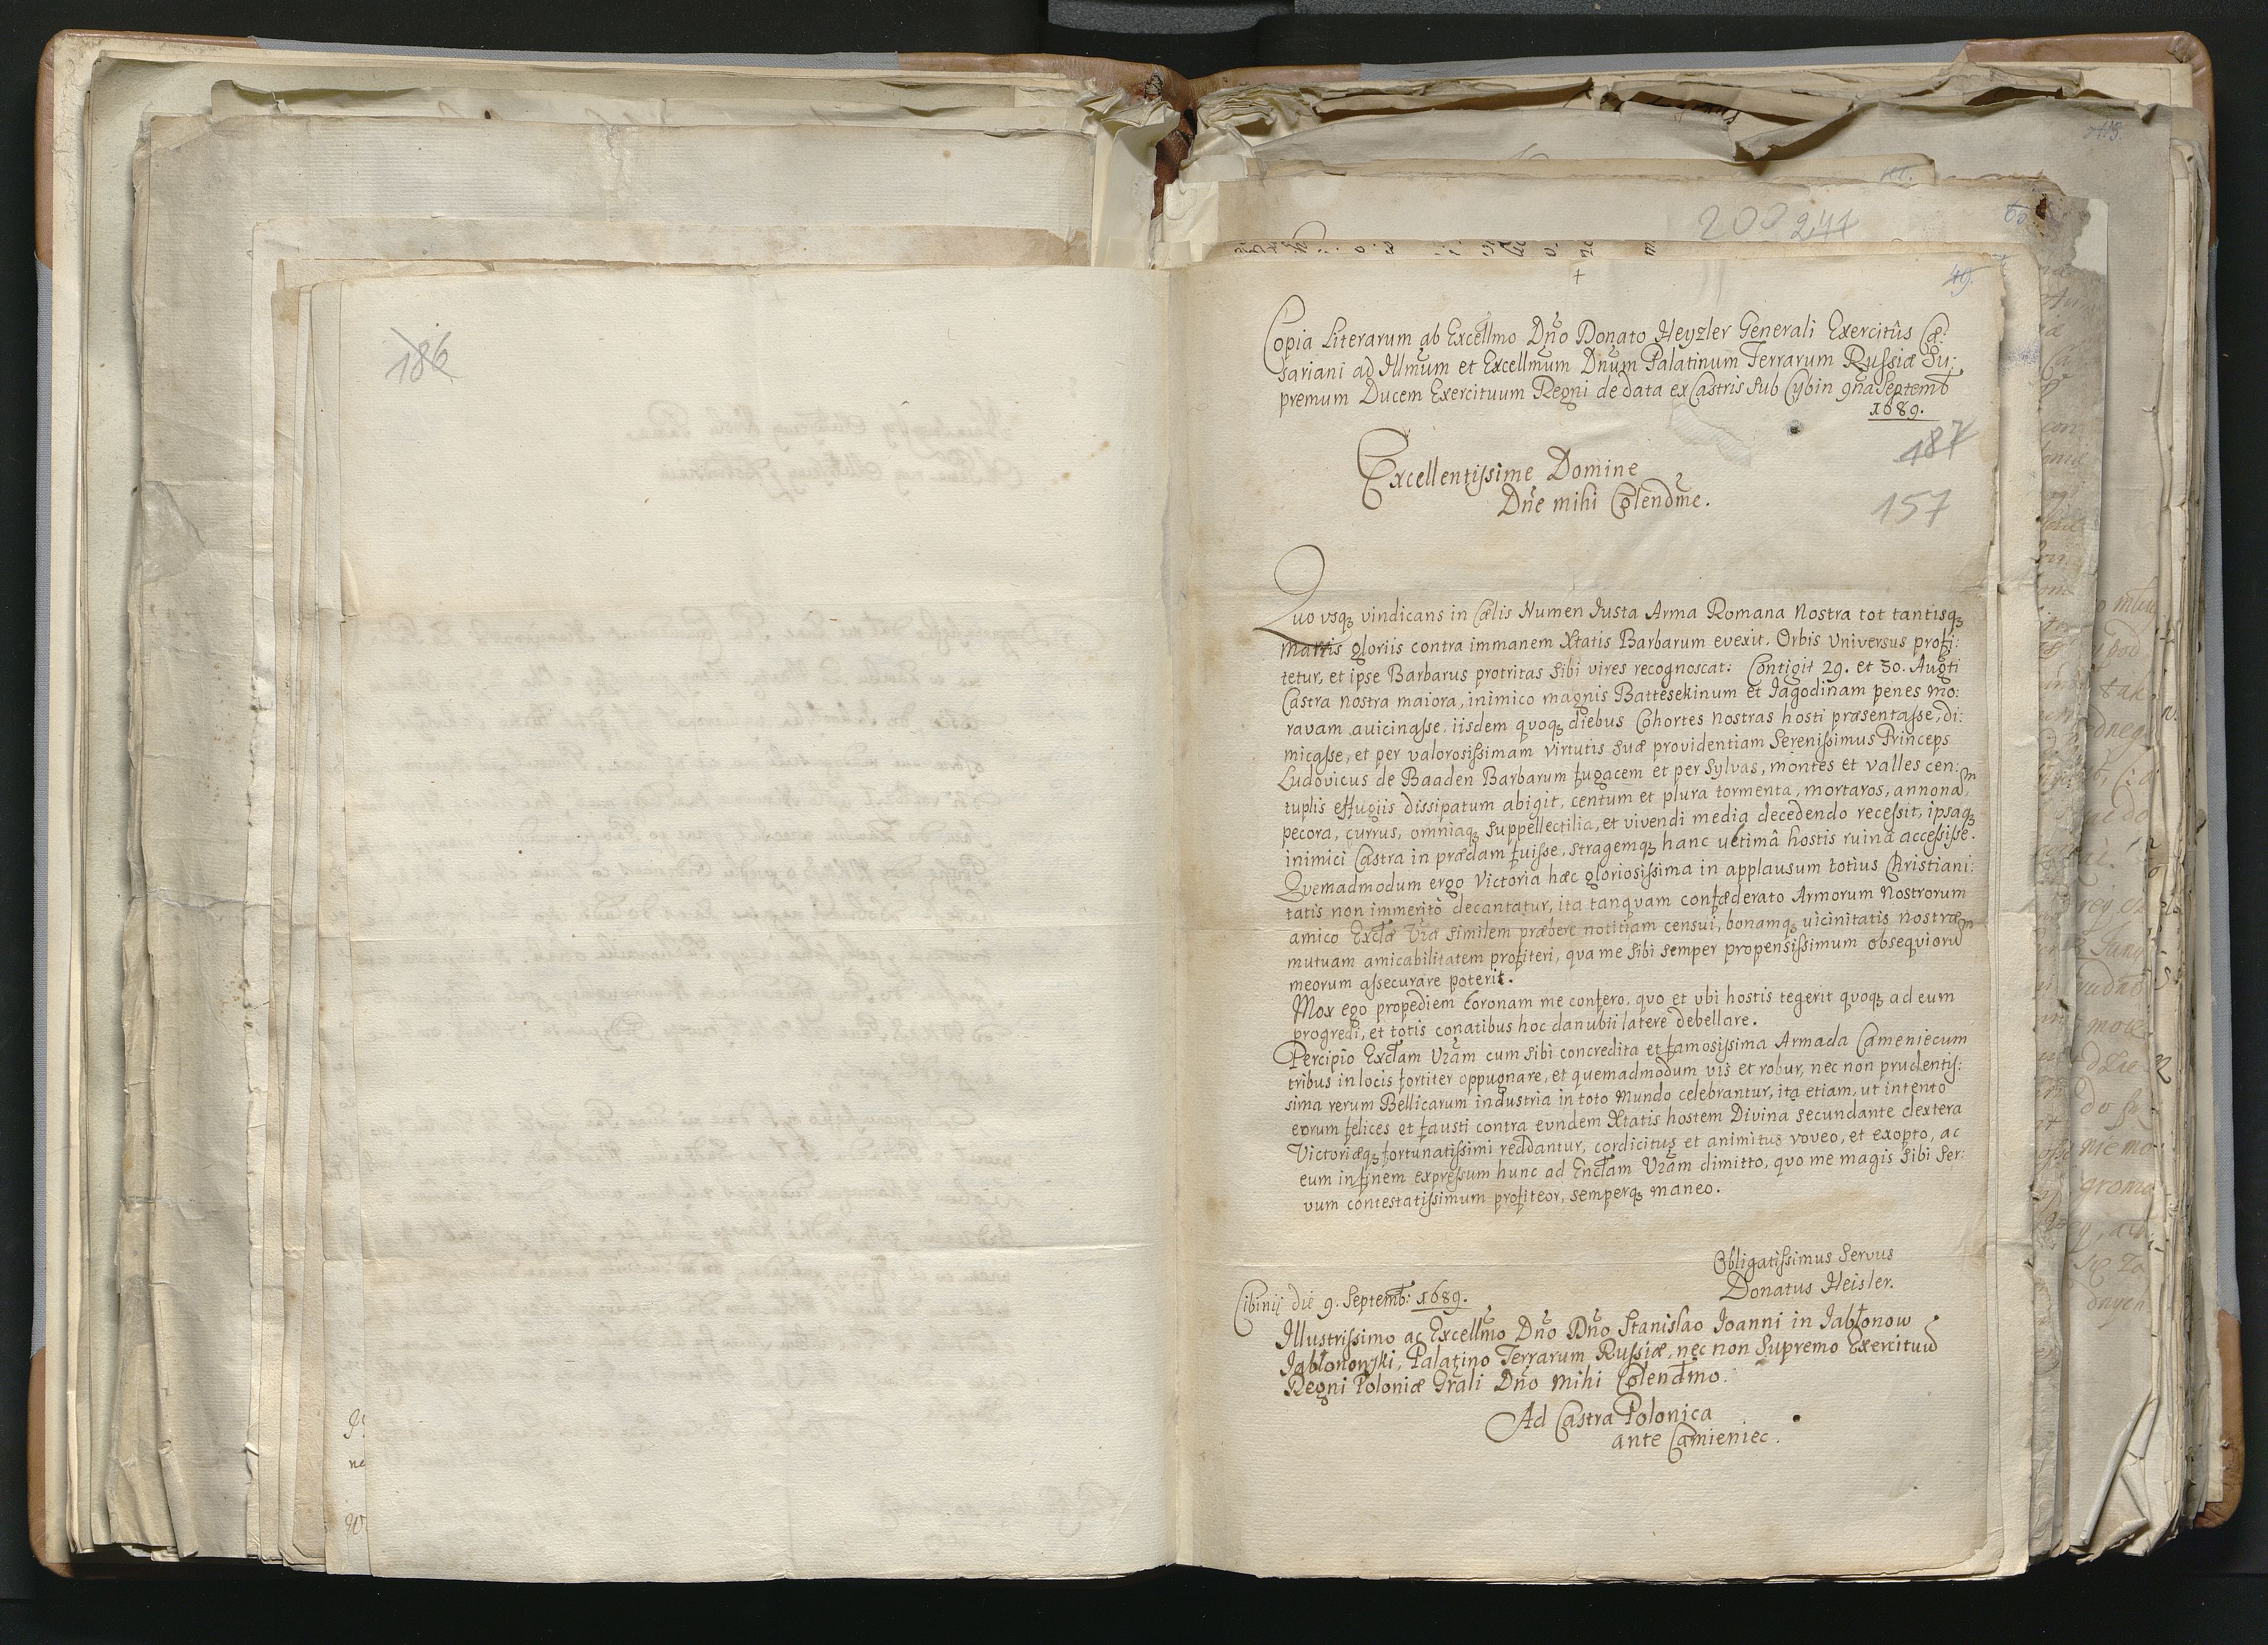 186
200 244
49.
+
Copia Literarum ab Excellmo Dño Donato Heyzler Generali Exercitûs Cæ:
sariani ad Illmum et Excellmum Dnum Palatinum Terrarum Russiæ Su:
premum Ducem Exercituum Regni de data ex Castris sub Cybin 9na Septemb
1689.
187
Excellentissime Domine
Dñe mihi Colendme.
157
Quo vsq₃ vindicans in Cælis Numen Iusta Arma Romana Nostra tot tantisq₃
Martis gloriis contra immanem Xtatis Barbarum evexit. Orbis Universus profi:
tetur, et ipse Barbarus protritas sibi vires recognoscat: Contigit 29. et 30. Augti
Castra nostra maiora, inimico magnis Battesekinum et Iagodinam penes Mo:
ravam auicinasse, iisdem quoq₃ diebus Cohortes nostras hosti præsentasse, di:
micasse, et per valorosissimam virtutis suæ providentiam Serenissimus Princeps
Ludovicus de Baaden Barbarum fugacem et per sylvas, montes et valles cen:
tuplis effugiis dissipatum abigit, centum et plura tormenta, mortaros, annonam,
pecora, currus, omniaq₃ suppellectilia, et vivendi media decedendo recessit, ipsaq₃
inimici Castra in prædam fuisse, stragemq₃ hanc ultimâ hostis ruinâ accessisse.
Qvemadmodum ergo Victoria hæc gloriosissima in applausum totius Christiani:
tatis non immeritò decantatur, ita tanquam confæderato Armorum Nostrorum
amico Exclæ Vræ similem præbere notitiam censui, bonamq₃ uicinitatis nostræ
mutuam amicabilitatem profiteri, qva me sibi semper propensissimum obseqviorum
meorum assecurare poterit.
Mox ego propediem Coronam me confero, qvo et vbi hostis tegerit quoq₃ ad eum
progredi, et totis conatibus hoc danubii latere debellare.
Percipio Exclam Vram cum sibi concredita et famosissima Armada Cameniecum
tribus in locis fortiter oppugnare, et quemadmodum vis et robur, nec non prudentis:
sima rerum Bellicarum industria in toto Mundo celebrantur, ita etiam, ut intento
eorum felices et fausti contra eundem Xtatis hostem Divina secundante dextera
Victoriæq₃ fortunatissimi reddantur, cordicitus et animitus voveo, et exopto, ac
eum in finem expressum hunc ad Enclam Vram dimitto, quo me magis sibi ser:
vum contestatissimum profiteor, semperq₃ maneo.
Obligatissimus Servus
Donatus Heisler.
Cibinij die 9. Septemb: 1689.
Illustrissimo ac Excellmo Dño Dño Stanislao Ioanni in Jabłonow
Jabłonowski, Palatino Terrarum Russiæ, nec non Supremo Exercituum
Regni Poloniæ Grali Dño Mihi Colendmo.
Ad Castra Polonica
ante Camieniec.